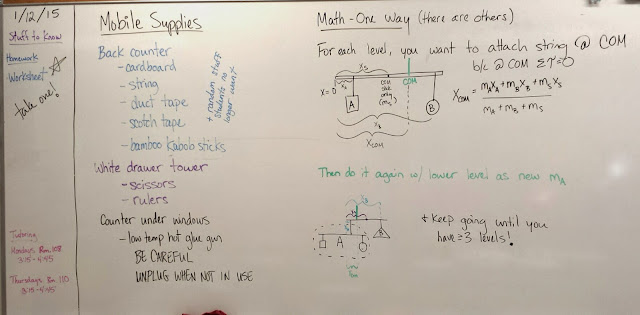 1/12/15
Stuff to Know
Homework
Worksheet
take one!
Tutoring
Mondays Rm 108
3:15-4:45
Thursdays Rm 110
3:15-4:45
Mobile Supplies
Back counter
- cardboard
- string
- duct tape
- scotch tape
- bamboo kabob sticks
+ random stuff
students
larger want
White drawer tower
- scissors
- rulers
Counter under windows
- low temp hot glue gun
BE CAREFUL
UNPLUG WHEN NOT IN USE
Math - One Way (there are others)
For each level, you want to attach string @ COM
b/c @ COM Στ=0
X=0
Xs
COM
A
B
XB
XCOM
XCOM = mAXA + mBXB + msXs
mA + mB + ms
Then do it again w/ lower level as new mA
Xs
A
B
+ keep going until you
have ≥3 levels!